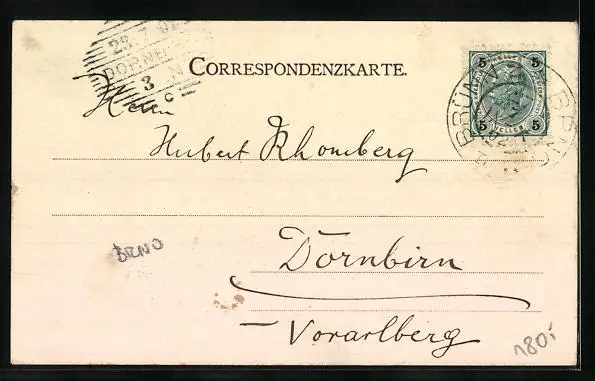 23.7.02
DORNBIRN
3 N
C
CORRESPONDENZKARTE.
5 5
HELLER
5 5
BRÜNN BRNO
Herrn
Hubert Rhomberg
BRNO
Dornbirn
– Vorarlberg
180,-